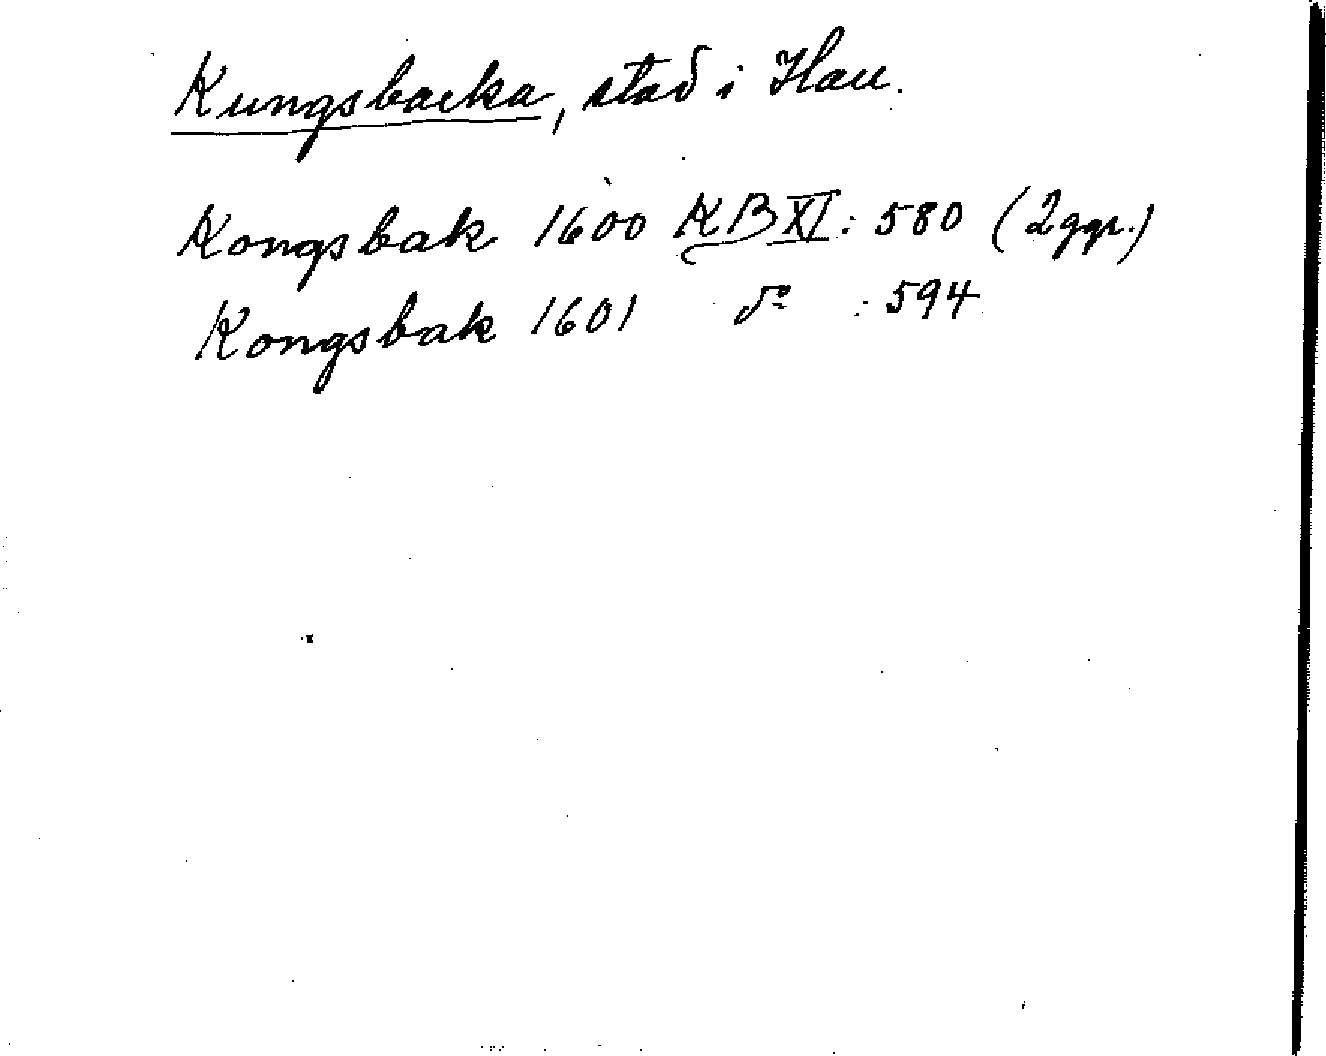 Kungsbacka, stad i Hall.
Kongsbak 1600 KB XI: 580 (2ggr.)
Kongsbak 1601 do : 594